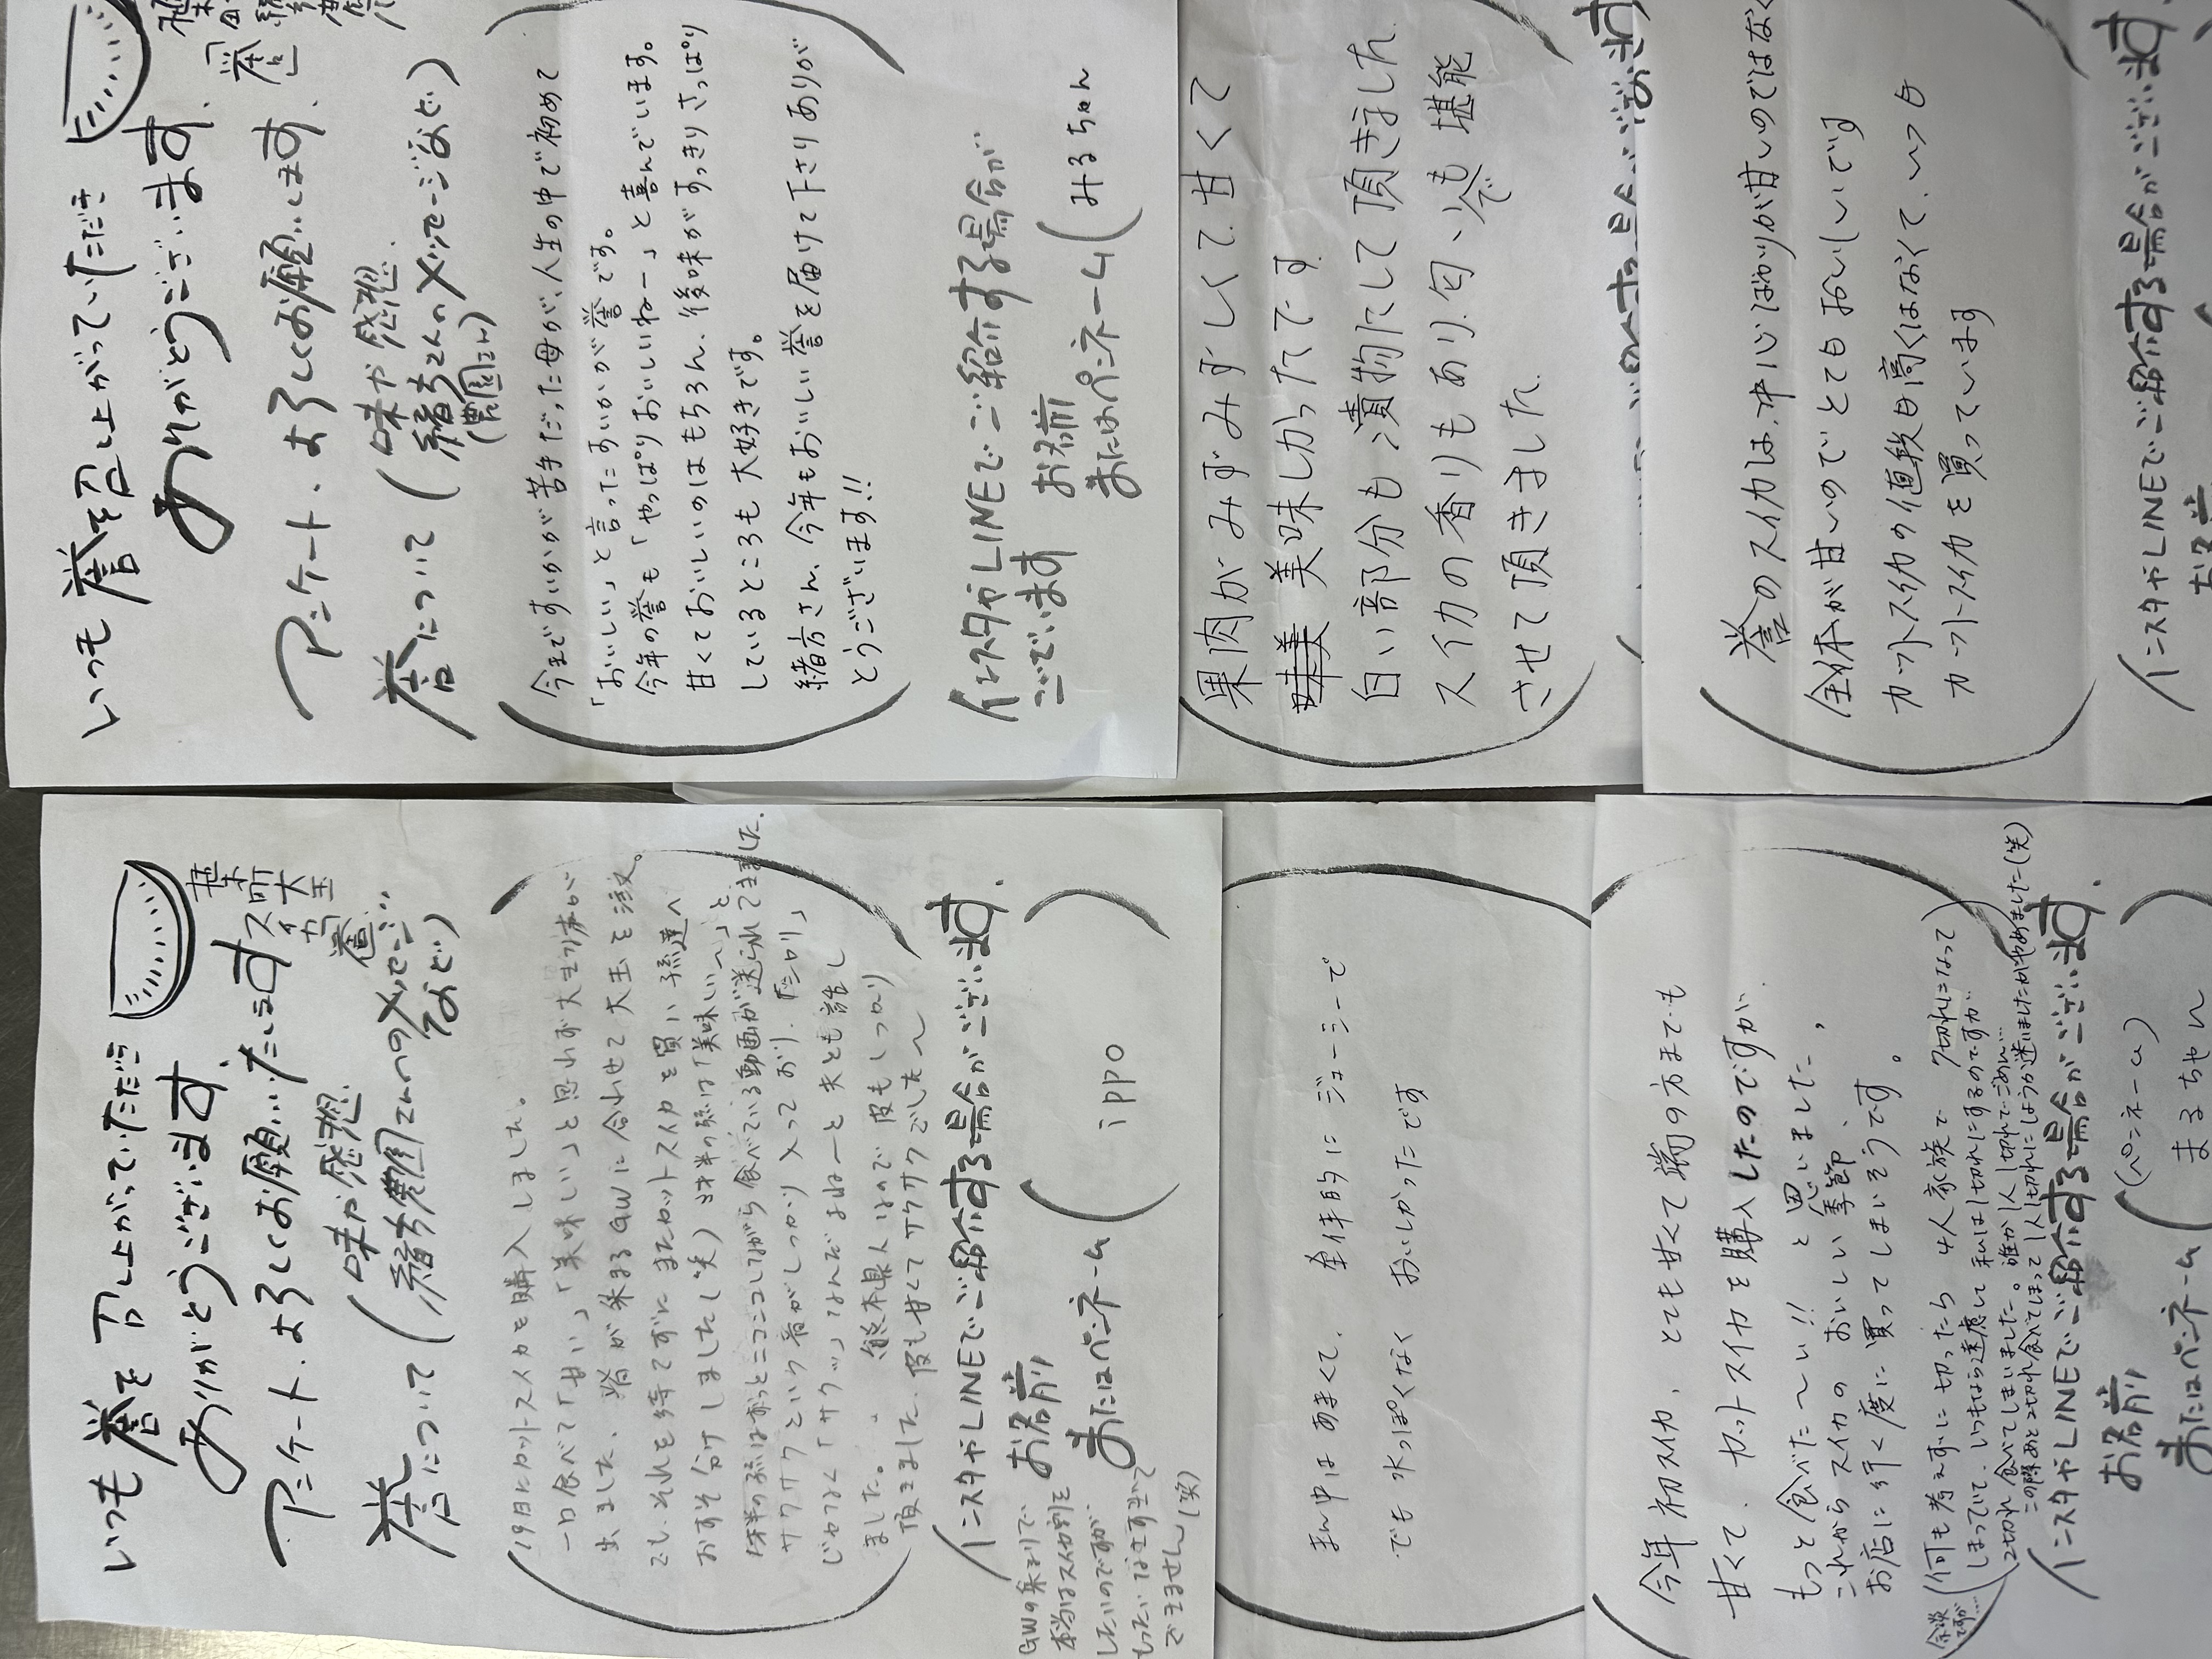 いつも 誉を召し上がっていただき
ありがとうございます.
アンケート、よろしくお願いします.
「誉」
誉について (味や感想.
緒方さんへのメッセージなど)
(農園さん)
今まですいかが苦手だった母が、人生の中で初めて
「おいしい」と言ったすいかが誉です。
今年の誉も「やっぱりおいしいねー」と喜んでいます。
甘くておいしいのはもちろん、後味がすっきりさっぱり
しているところも大好きです。
緒方さん、今年もおいしい誉を届けて下さりありが
とうございます!!
インスタやLINEでご紹介する場合が
ございます
お名前
またはペンネーム(みるちゃん
果肉がみずみずしくて.甘くて
美味しかったです
白い部分も、漬物にして頂きました
スイカの香りもあり.匂いでも堪能
させて頂きました.
誉のスイカは、中心ばかりが甘いのではなく
全体が甘いのでとてもおいしいです
カットスイカの値段も高くはなくて、いつも
カットスイカを買っています
インスタやLINEでご紹介する場合がございます
いつも 誉を召し上がっていただき
ありがとうございます.
アンケート、よろしくお願いいたします
大玉
スイカ
誉
誉について (味や感想.
緒方農園さんへのメッセージ…
など)
19日にカットスイカを購入しました。
一口食べて「甘い」「美味しい」と思わず大きな声が
出ました、皆が集まるGWに合わせて大玉を注文。
でも、それを待てずにまたカットスイカを買い孫達へ
おすそ分けしました(笑) 3才半の孫は「美味しい〜」と
1才半の孫はずっとニコニコしながら食べている動画が送られてきました.
サクサクという音がしっかり入っており、「シャリ」
じゃなく「サクッ」なんだよねーと夫とも話し
ました。熊本県人なので皮もしっかり
頂きました.皮も甘くてサクサクでした〜
インスタやLINEでご紹介する場合がございます.
お名前
またはペンネーム ( ippo )
GWの集まりで
本当はスイカ割りを
したいのですが
もったいなさすぎて
できません(笑)
まん中は あまくて、全体的に ジューシーで
でも 水っぽくなく おいしかったです
今年初スイカ、とても甘くて端の方までも
甘くて、カットスイカを購入したのですが、
もっと食べた〜い!! と思いました、
これからスイカの おいしい季節、
お店に行く度に買ってしまいそうです。
余談ですが…
(何も考えずに切ったら 4人家族で 7切れになって
しまっていて、いつもなら遠慮して私は1切れにするのですが
2切れ食べてしまいました。誰か1人1切れでごめん…
この際あと2切れ食べてしまって1人1切れにしようか迷いましたがやめました(笑)
インスタやLINEでご紹介する場合がございます.
お名前
またはペンネーム ((ペンネーム)
まるちゃん